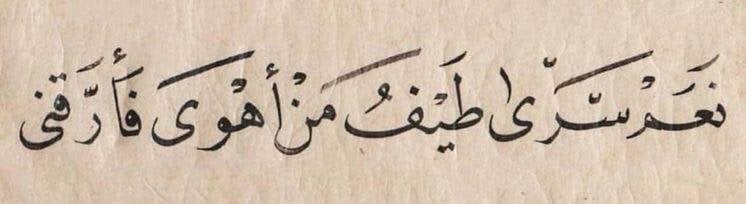 نَعَمْ سَرَّى طَيْفُ مَنْ أَهْوَى فَأَرَّقَنِي